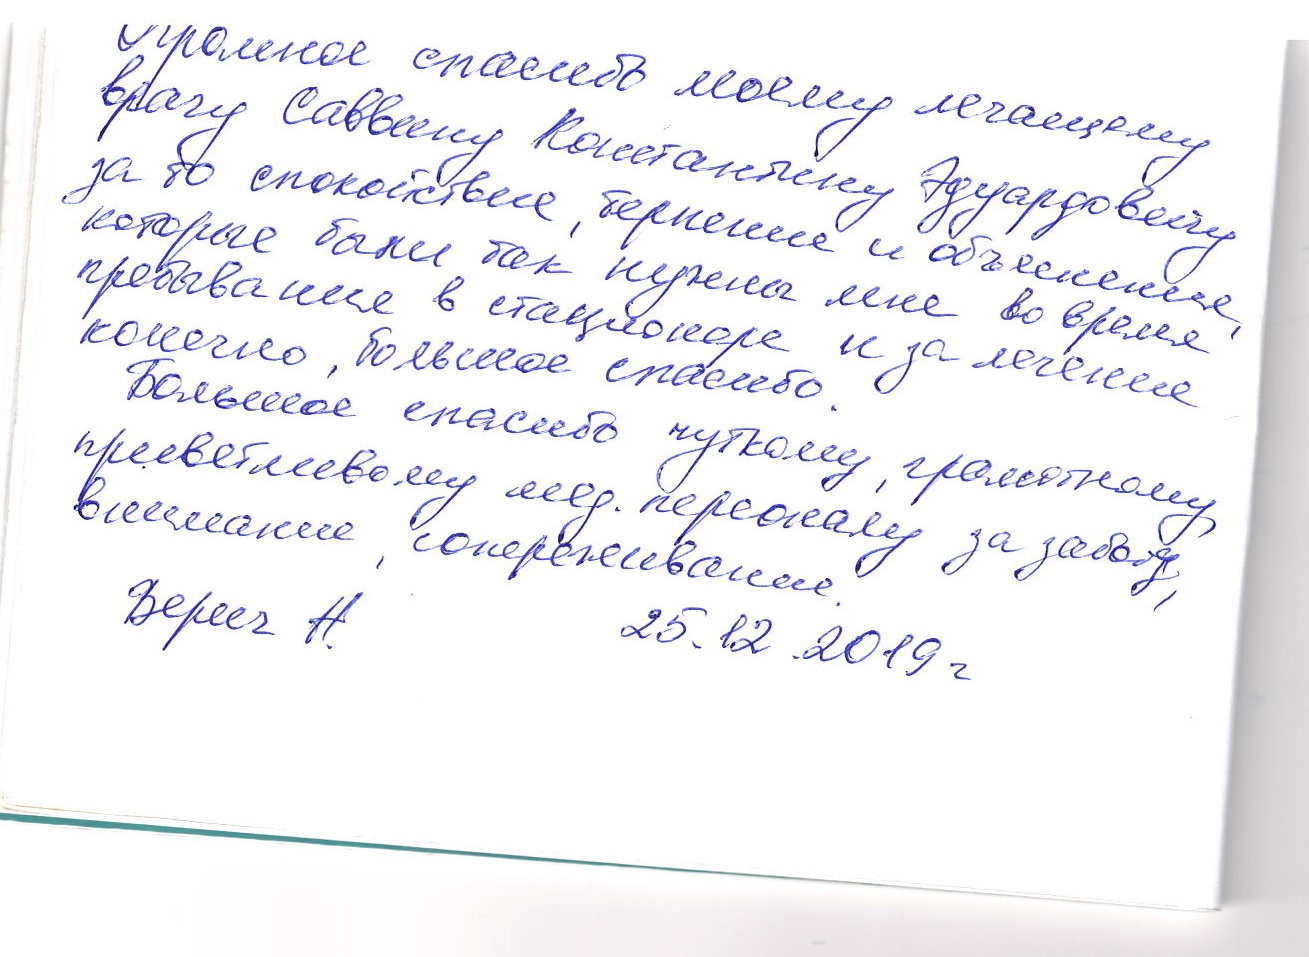 Огромное спасибо моему лечащему
врачу Саввину Константину Эдуардовичу
за то спокойствие, терпение и объяснения,
которые были так нужны мне во время
пребывания в стационаре и за лечение
конечно, большое спасибо.
Большое спасибо чуткому, грамотному,
приветливому мед. персоналу за заботу,
внимание, сопереживание.
Верич Н. 25.12.2019 г